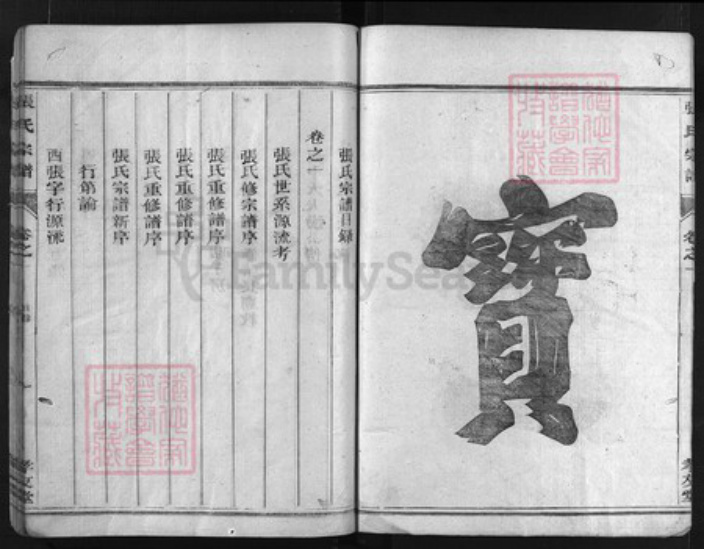 寶
張氏宗譜
卷之一
孝友堂
張氏宗譜目錄
卷之一
張氏世系源流考
張氏修宗譜序
張氏重修譜序
張氏重修譜序
張氏重修譜序
張氏宗譜新序
行第論
西張字行源流
張氏宗譜
卷之一
孝友堂
FamilySea